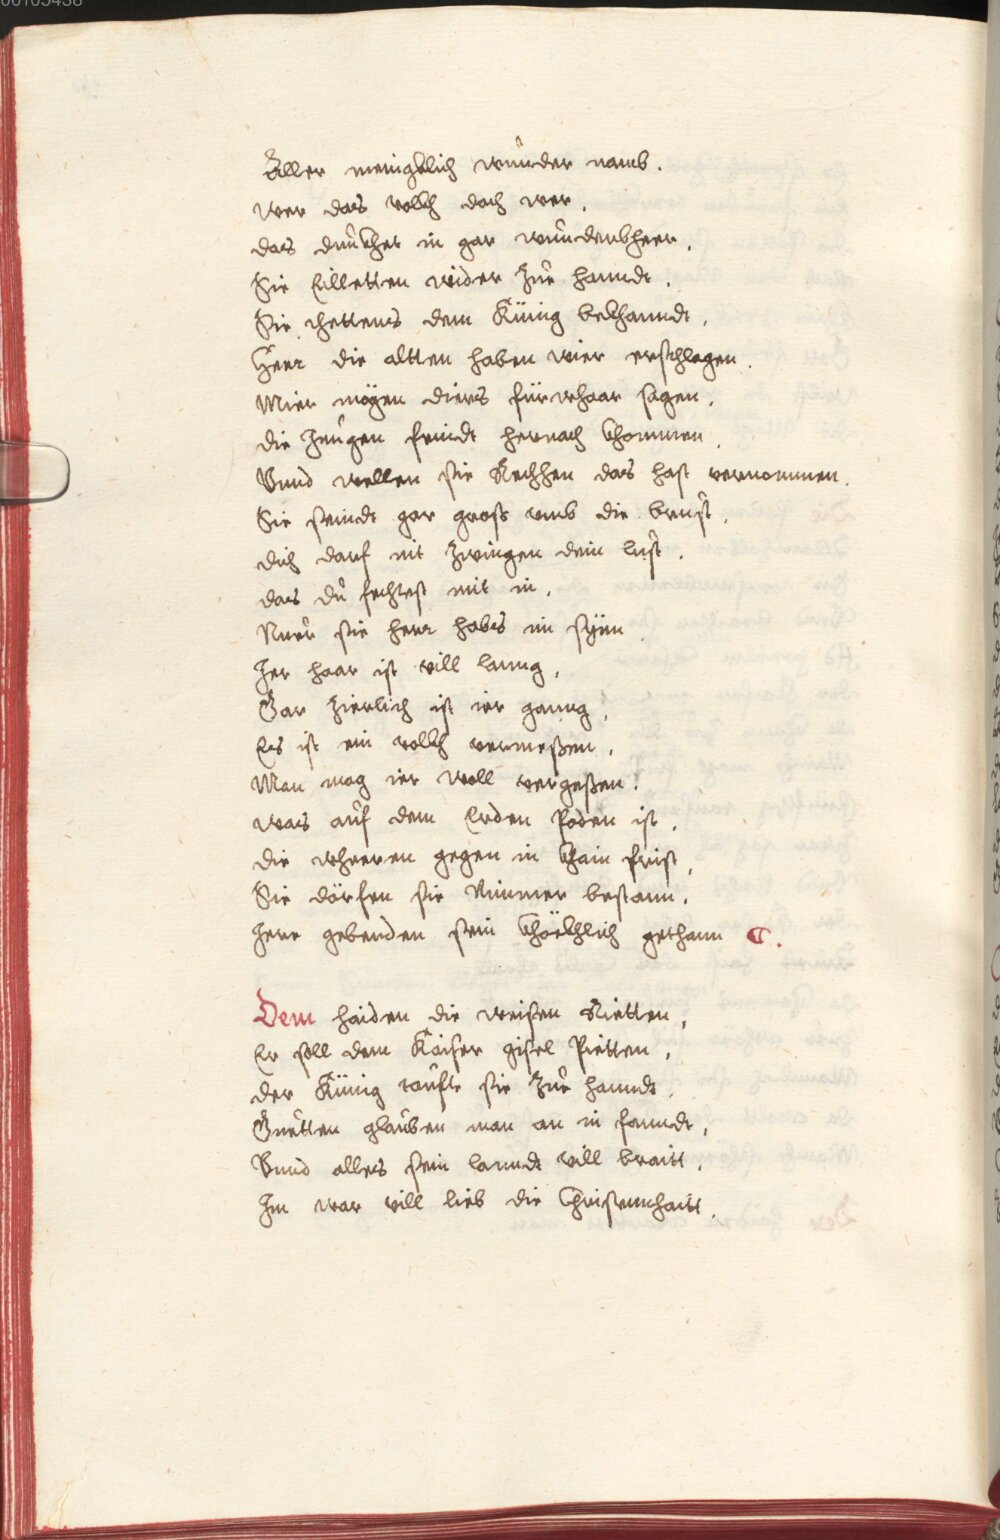 00105438
Aller menigklich wunder namb.
wer das vollkh doch wer,
das dunkhet in gar wunderbheer,
Sie Eilletten wider Zur hanndt,
Sie thettens dem Künig bekhanndt,
Herr die altten haben wier erschlagen.
Mier mögen diers fürwhaar sagen,
die Jungen seindt hernach khommen,
Vnnd wellen sie Rechhen das hast vernommen.
Sie seindt gar groß vmb die brust,
dich darf nit Zwingen dein lust,
das du fechtest mit in,
Nuer sie herr habs im synn.
Ier haar ist vill lanng,
Gar Zierlich ist ier ganng,
Es ist ein vollkh vermeßen,
Man mag ier woll vergeßen!
was auf dem Erden Poden ist,
die wheeren gegen in khain frist,
Sie dörfen sie Nimmer bestann,
Herr gebenden sein khöckhlich gethann C.
Dem haiden die weisen Rietten,
Er soll dem Kaiser gisel Pietten,
der Künig taufte sie Zur hanndt,
Guetten glauben man an in fanndt,
Vnnd alles sein lanndt vill braitt,
Im war vill lieb die Christennhaitt.